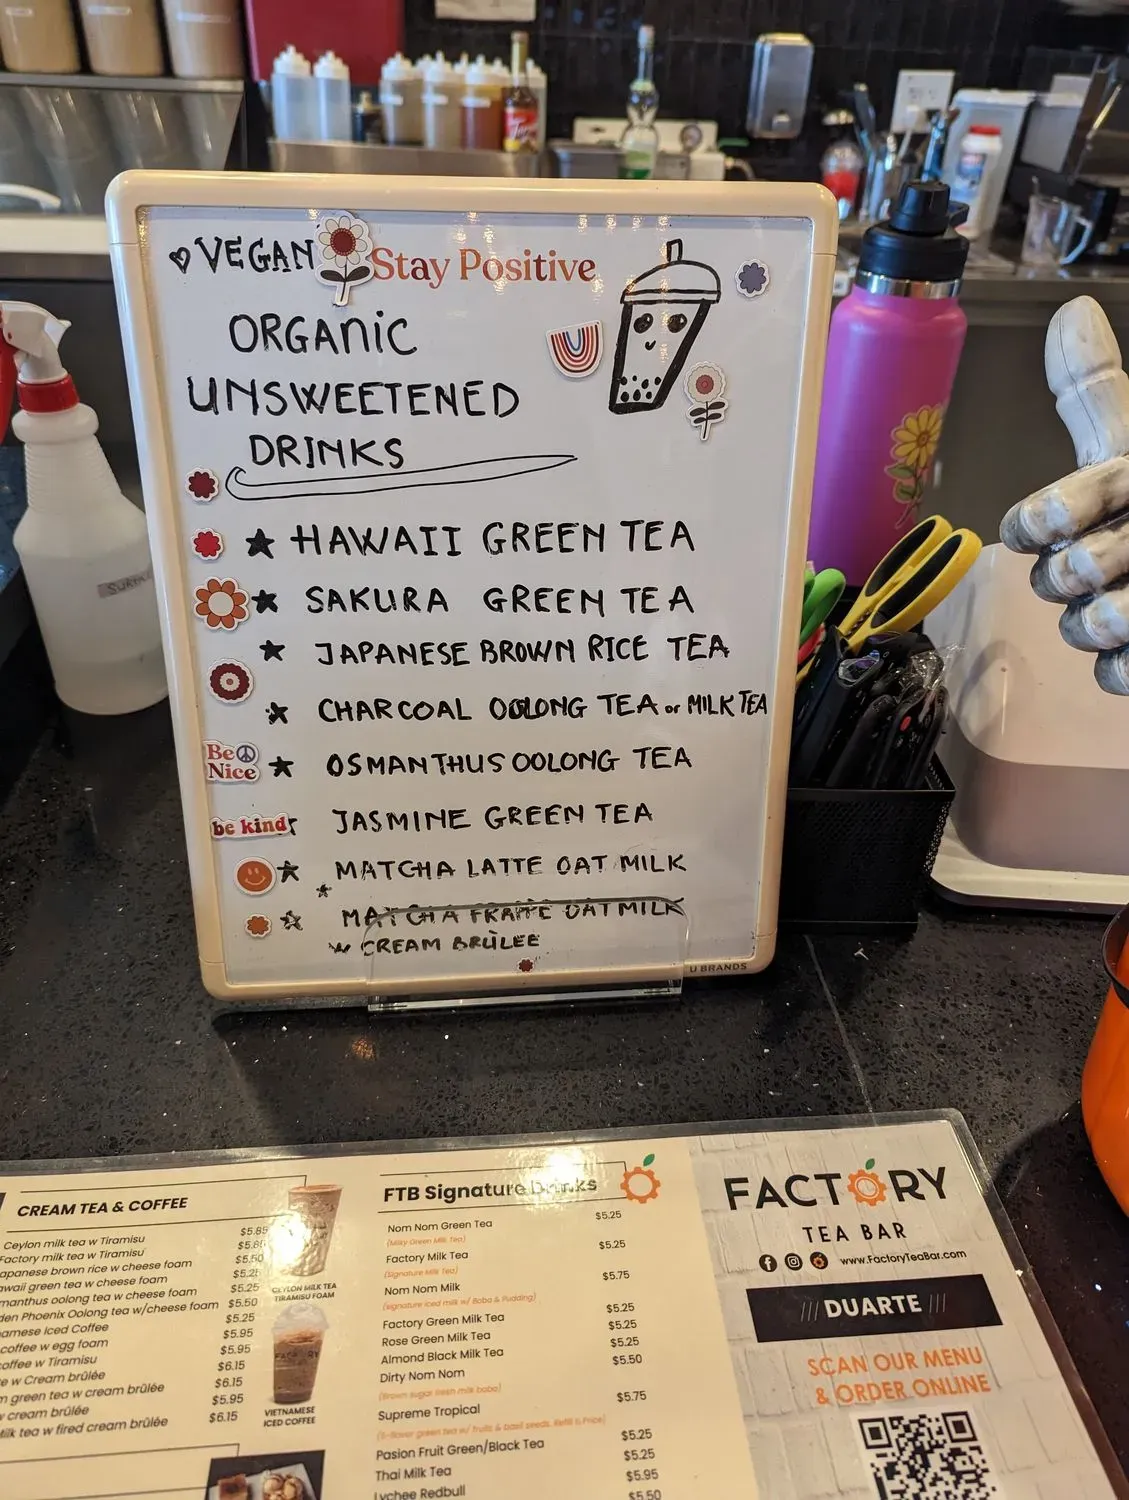 VEGAN
Stay Positive
ORGANIC
UNSWEETENED
DRINKS
HAWAII GREEN TEA
SAKURA GREEN TEA
JAPANESE BROWN RICE TEA
CHARCOAL OOLONG TEA or MILK TEA
Be
Nice
OSMANTHUS OOLONG TEA
be kind
JASMINE GREEN TEA
MATCHA LATTE OAT MILK
MATCHA FRAPPE OATMILK
W CREAM BRÛLEE
U BRANDS
CREAM TEA & COFFEE
Ceylon milk tea w Tiramisu $5.85
Factory milk tea w Tiramisu
apanese brown rice w cheese foam $5.50
awaii green tea w cheese foam $5.25
manthus oolong tea w cheese foam $5.25
den Phoenix Oolong tea w/cheese foam $5.50
namese Iced Coffee $5.25
coffee w egg foam $5.95
coffee w Tiramisu $5.95
e w Cream brûlée $6.15
n green tea w cream brûlée $6.15
w cream brûlée $5.95
ilk tea w fired cream brûlée $6.15
CEYLON MILK TEA
TIRAMISU FOAM
VIETNAMESE
ICED COFFEE
FTB Signature Drinks
Nom Nom Green Tea $5.25
(Milky Green Milk Tea)
Factory Milk Tea $5.25
(Signature Milk Tea)
Nom Nom Milk $5.75
(signature iced milk w/ Boba & Pudding)
Factory Green Milk Tea $5.25
Rose Green Milk Tea $5.25
Almond Black Milk Tea $5.25
Dirty Nom Nom $5.50
(Brown sugar fresh milk boba)
Supreme Tropical $5.75
(5-flavor green tea w/ fruits & basil seeds. Refill ½ Price)
Pasion Fruit Green/Black Tea $5.25
Thai Milk Tea $5.25
Lychee Redbull $5.95
$5.50
FACTORY
TEA BAR
www.FactoryTeaBar.com
/// DUARTE ///
SCAN OUR MENU
& ORDER ONLINE